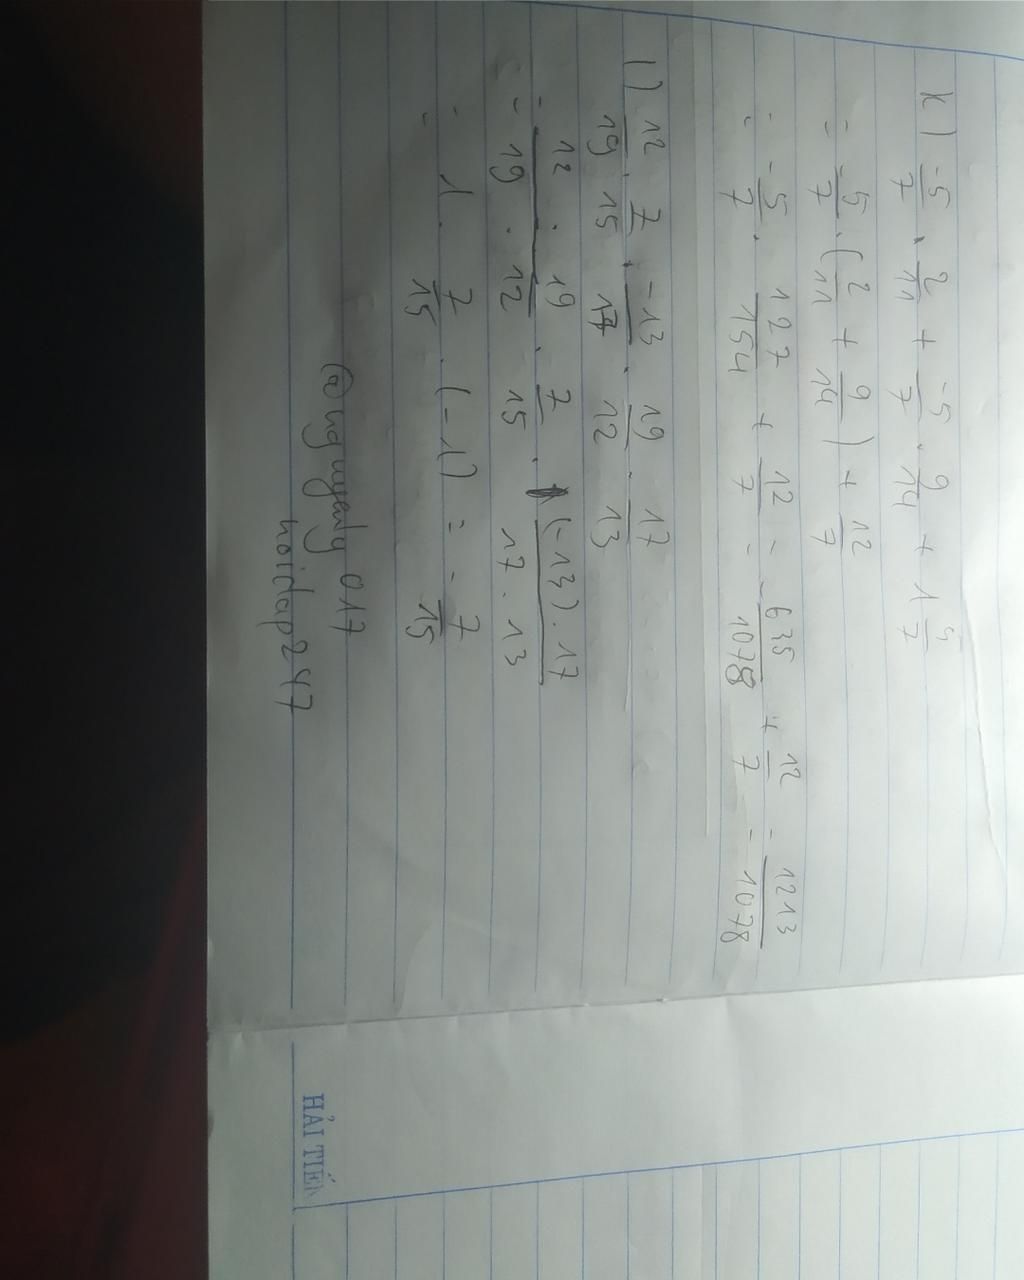 k) -5/7 . 2/11 + -5/7 . 9/14 + 1 5/7
= -5/7 . (2/11 + 9/14) + 12/7
= -5/7 . 127/154 + 12/7 = -635/1078 + 12/7 = 1213/1078
l) 12/19 . 7/15 . -13/17 . 19/12 . 17/13
= 12 . 19/19 . 12 . 7/15 . (-13) . 17/17 . 13
= 1 . 7/15 . (-1) = -7/15
@nguyenly017
hoidap247
HẢI TIẾN